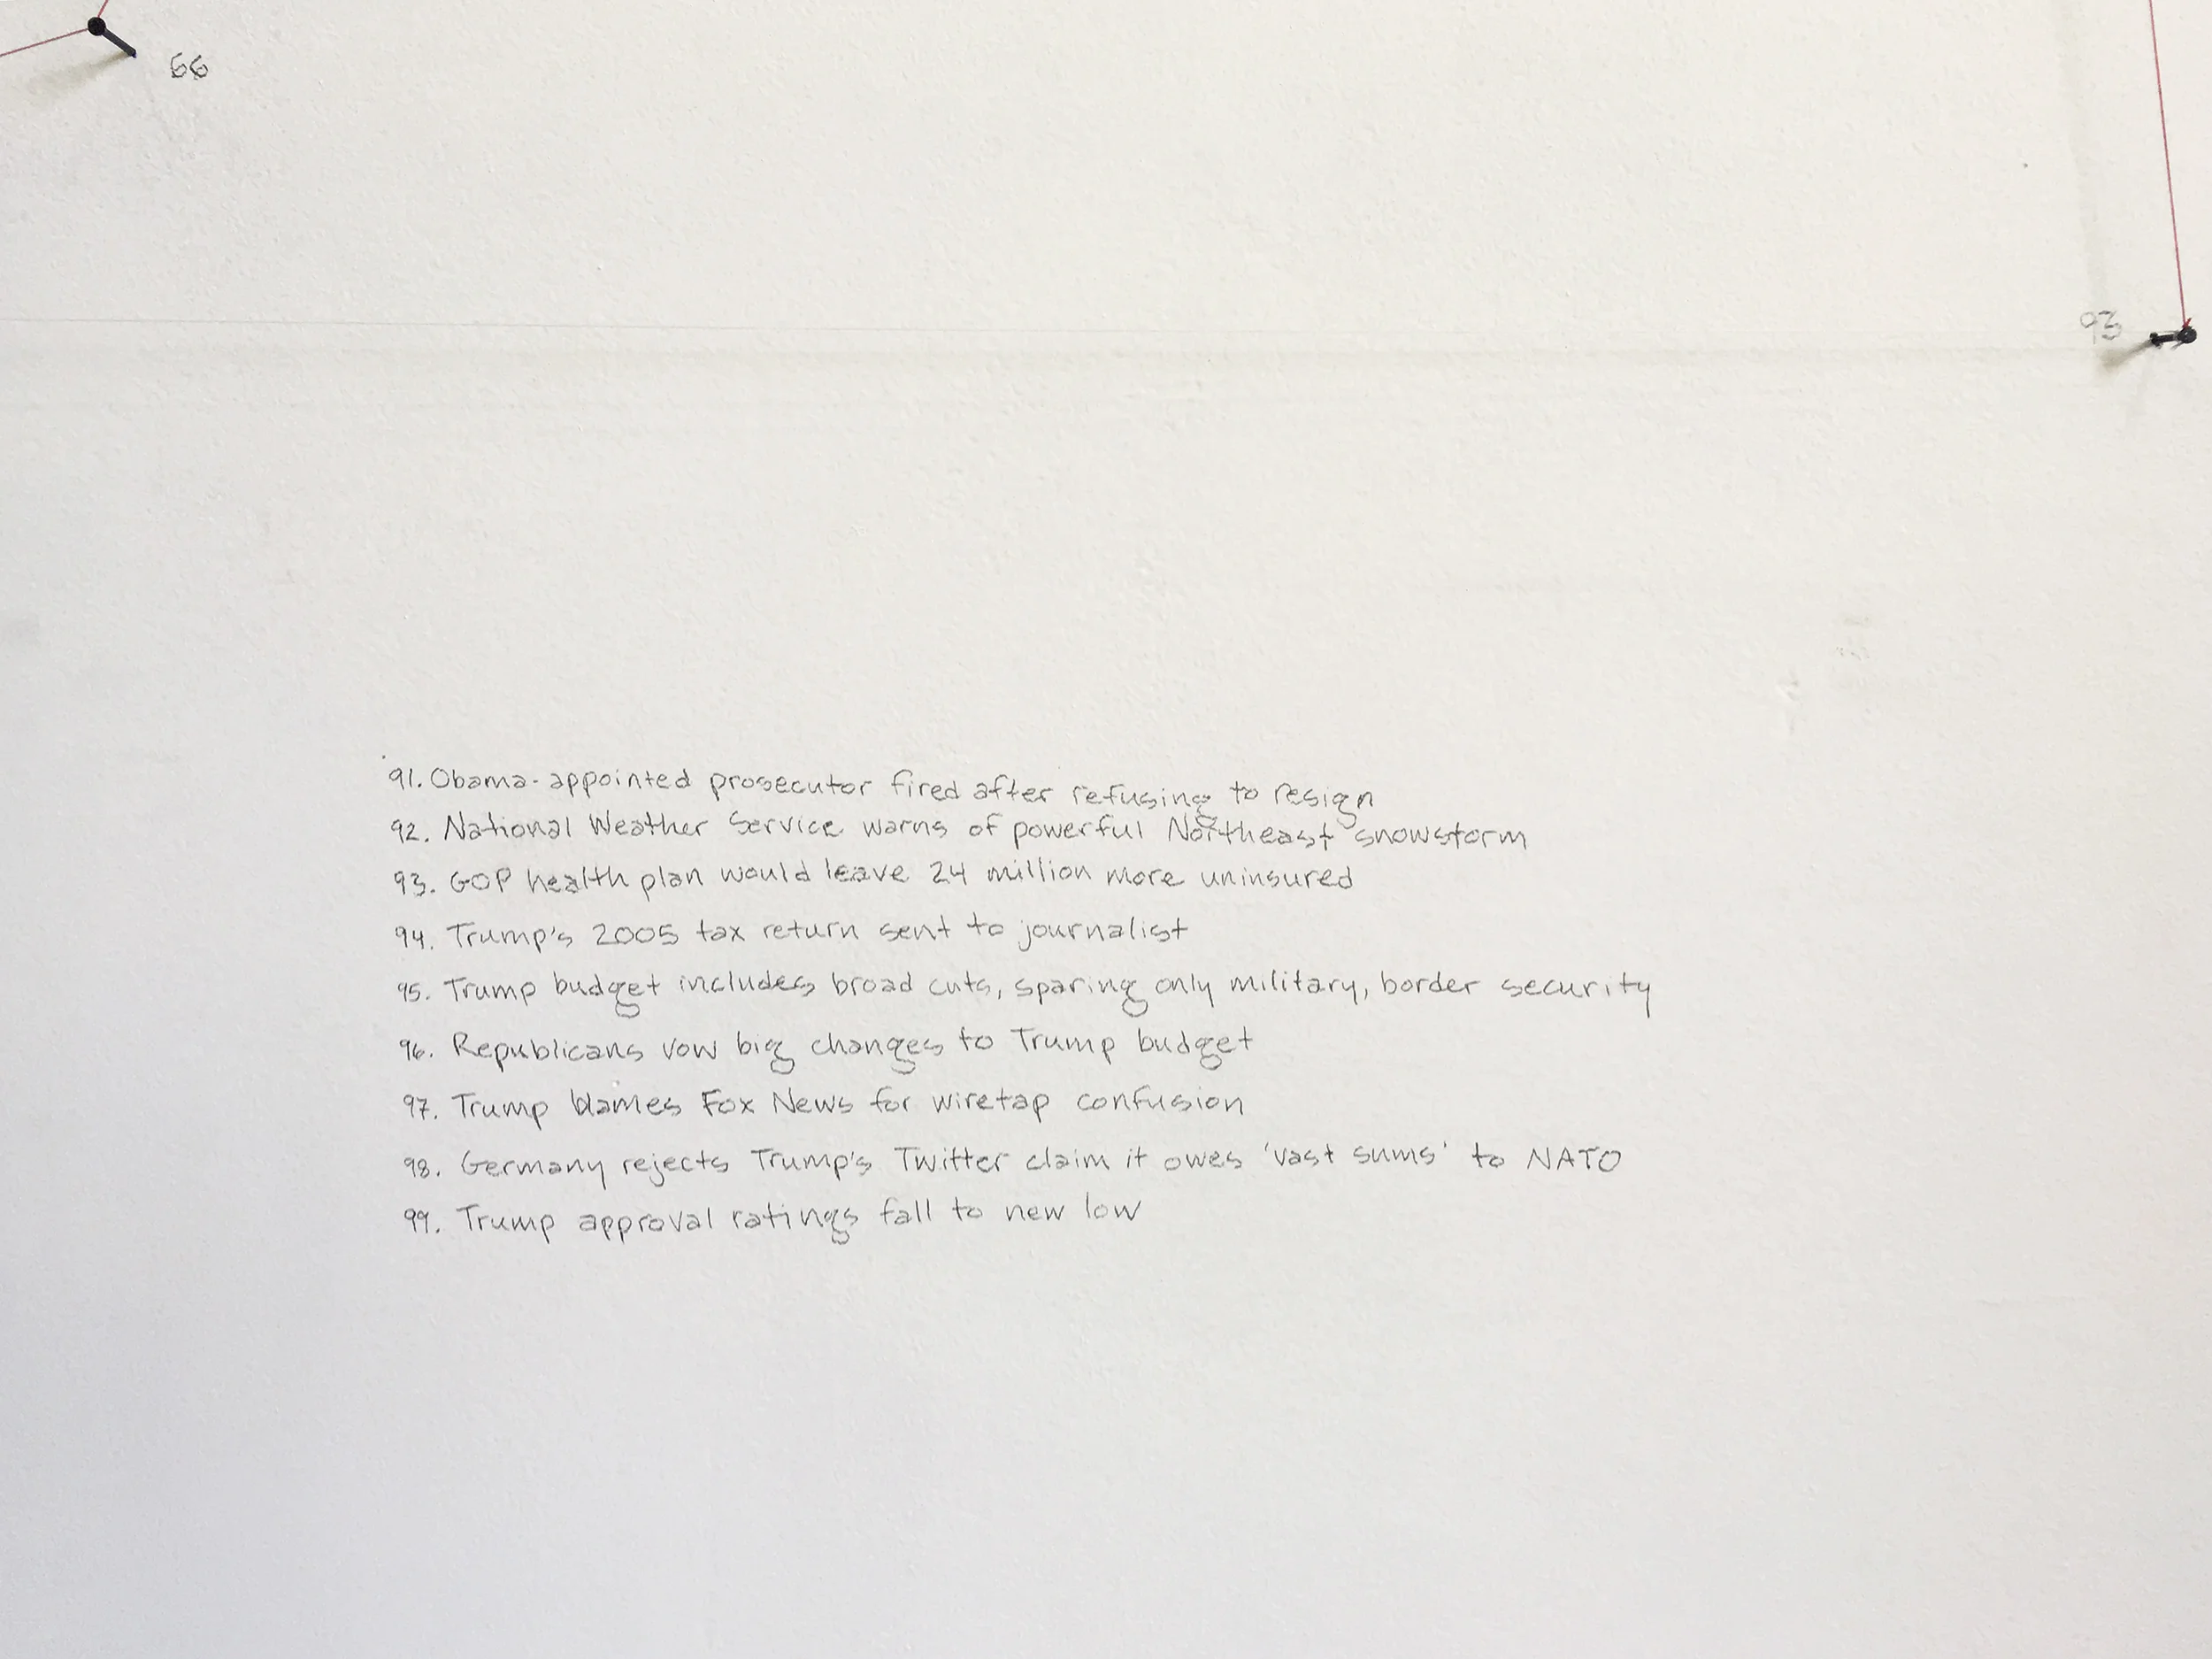 66
93
91. Obama-appointed prosecutor fired after refusing to resign
92. National Weather Service warns of powerful Northeast snowstorm
93. GOP health plan would leave 24 million more uninsured
94. Trump's 2005 tax return sent to journalist
95. Trump budget includes broad cuts, sparing only military, border security
96. Republicans vow big changes to Trump budget
97. Trump blames Fox News for wiretap confusion
98. Germany rejects Trump's Twitter claim it owes 'vast sums' to NATO
99. Trump approval ratings fall to new low